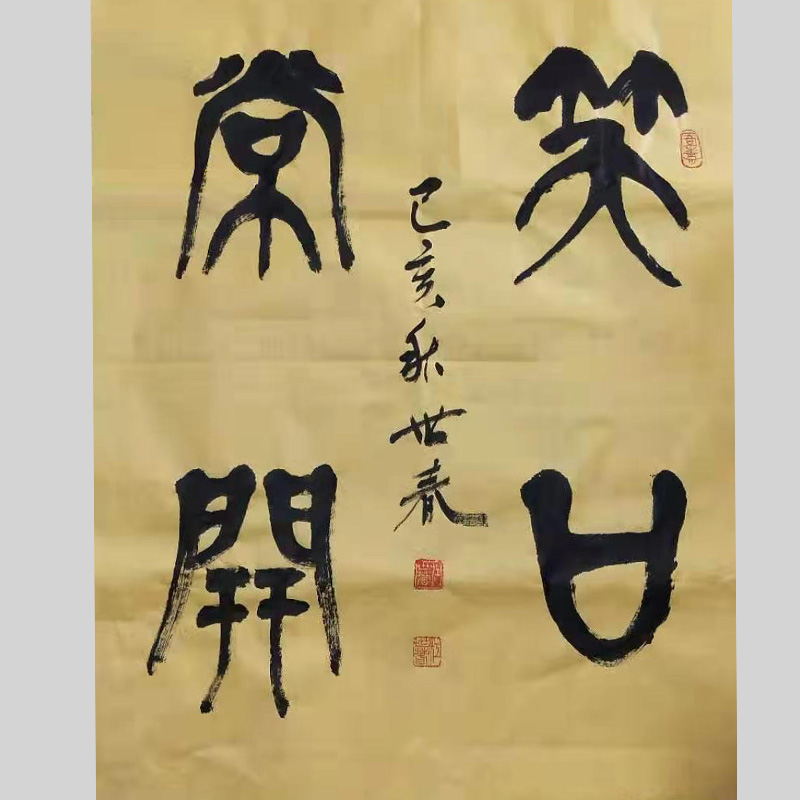 笑口
常開
己亥秋世春